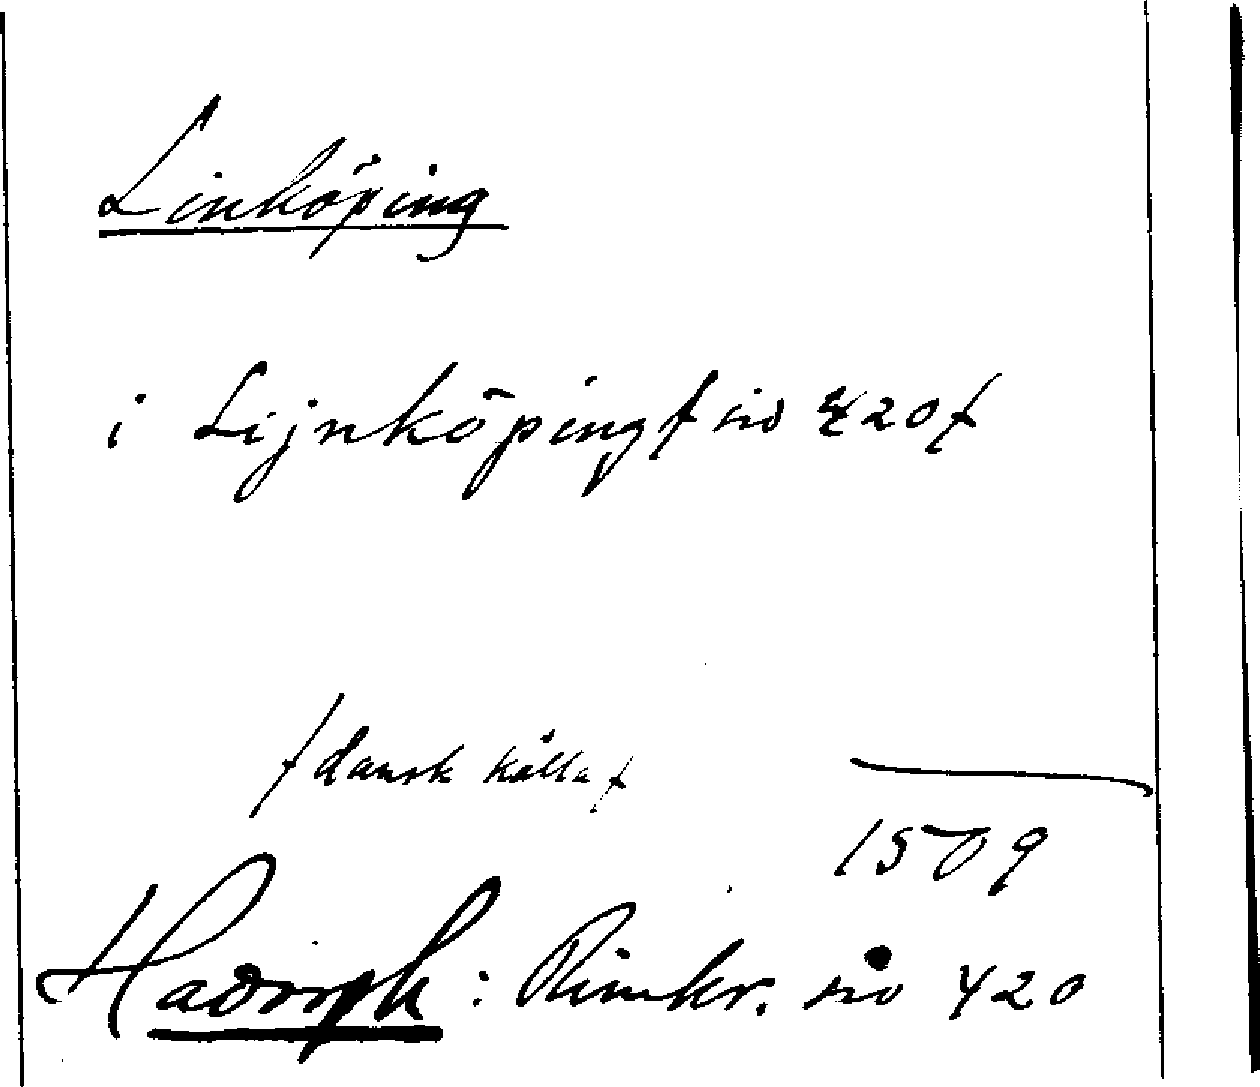 Linköping
i Lijnköping / sid 420 /
/ dansk källa /
1509
Hadorph: Rimkr. sid 420